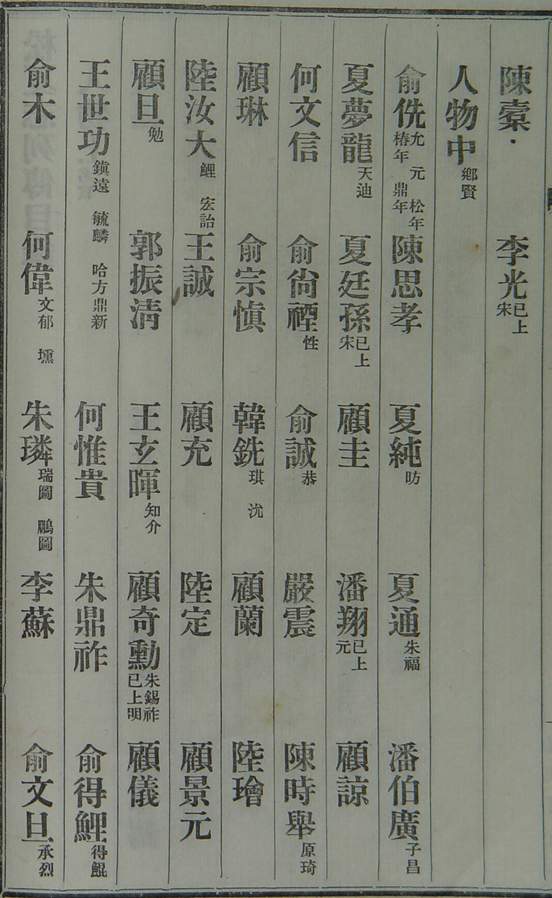 陳橐 李光已上宋
人物中鄉賢
俞侁允元 松年 椿年 鼎年 陳思孝 夏純昉 夏通朱福 潘伯廣子昌
夏夢龍天迪 夏廷孫已上宋 顧圭 潘翔已上元 顧諒
何文信 俞尙禋性 俞誠恭 嚴震 陳時舉原琦
顧琳 俞宗慎 韓銑琪 沈 顧蘭 陸璯
陸汝大鯉 宏詒 王誠 顧充 陸定 顧景元
顧旦勉 郭振淸 王玄暉知介 顧奇勳朱錫祚 已上明 顧儀
王世功鎭遠 毓麟 哈方鼎新 何惟貴 朱鼎祚 俞得鯉得鯤
俞木 何偉文郁 壎 朱璘瑞圖 鵬圖 李蘇 俞文旦承烈